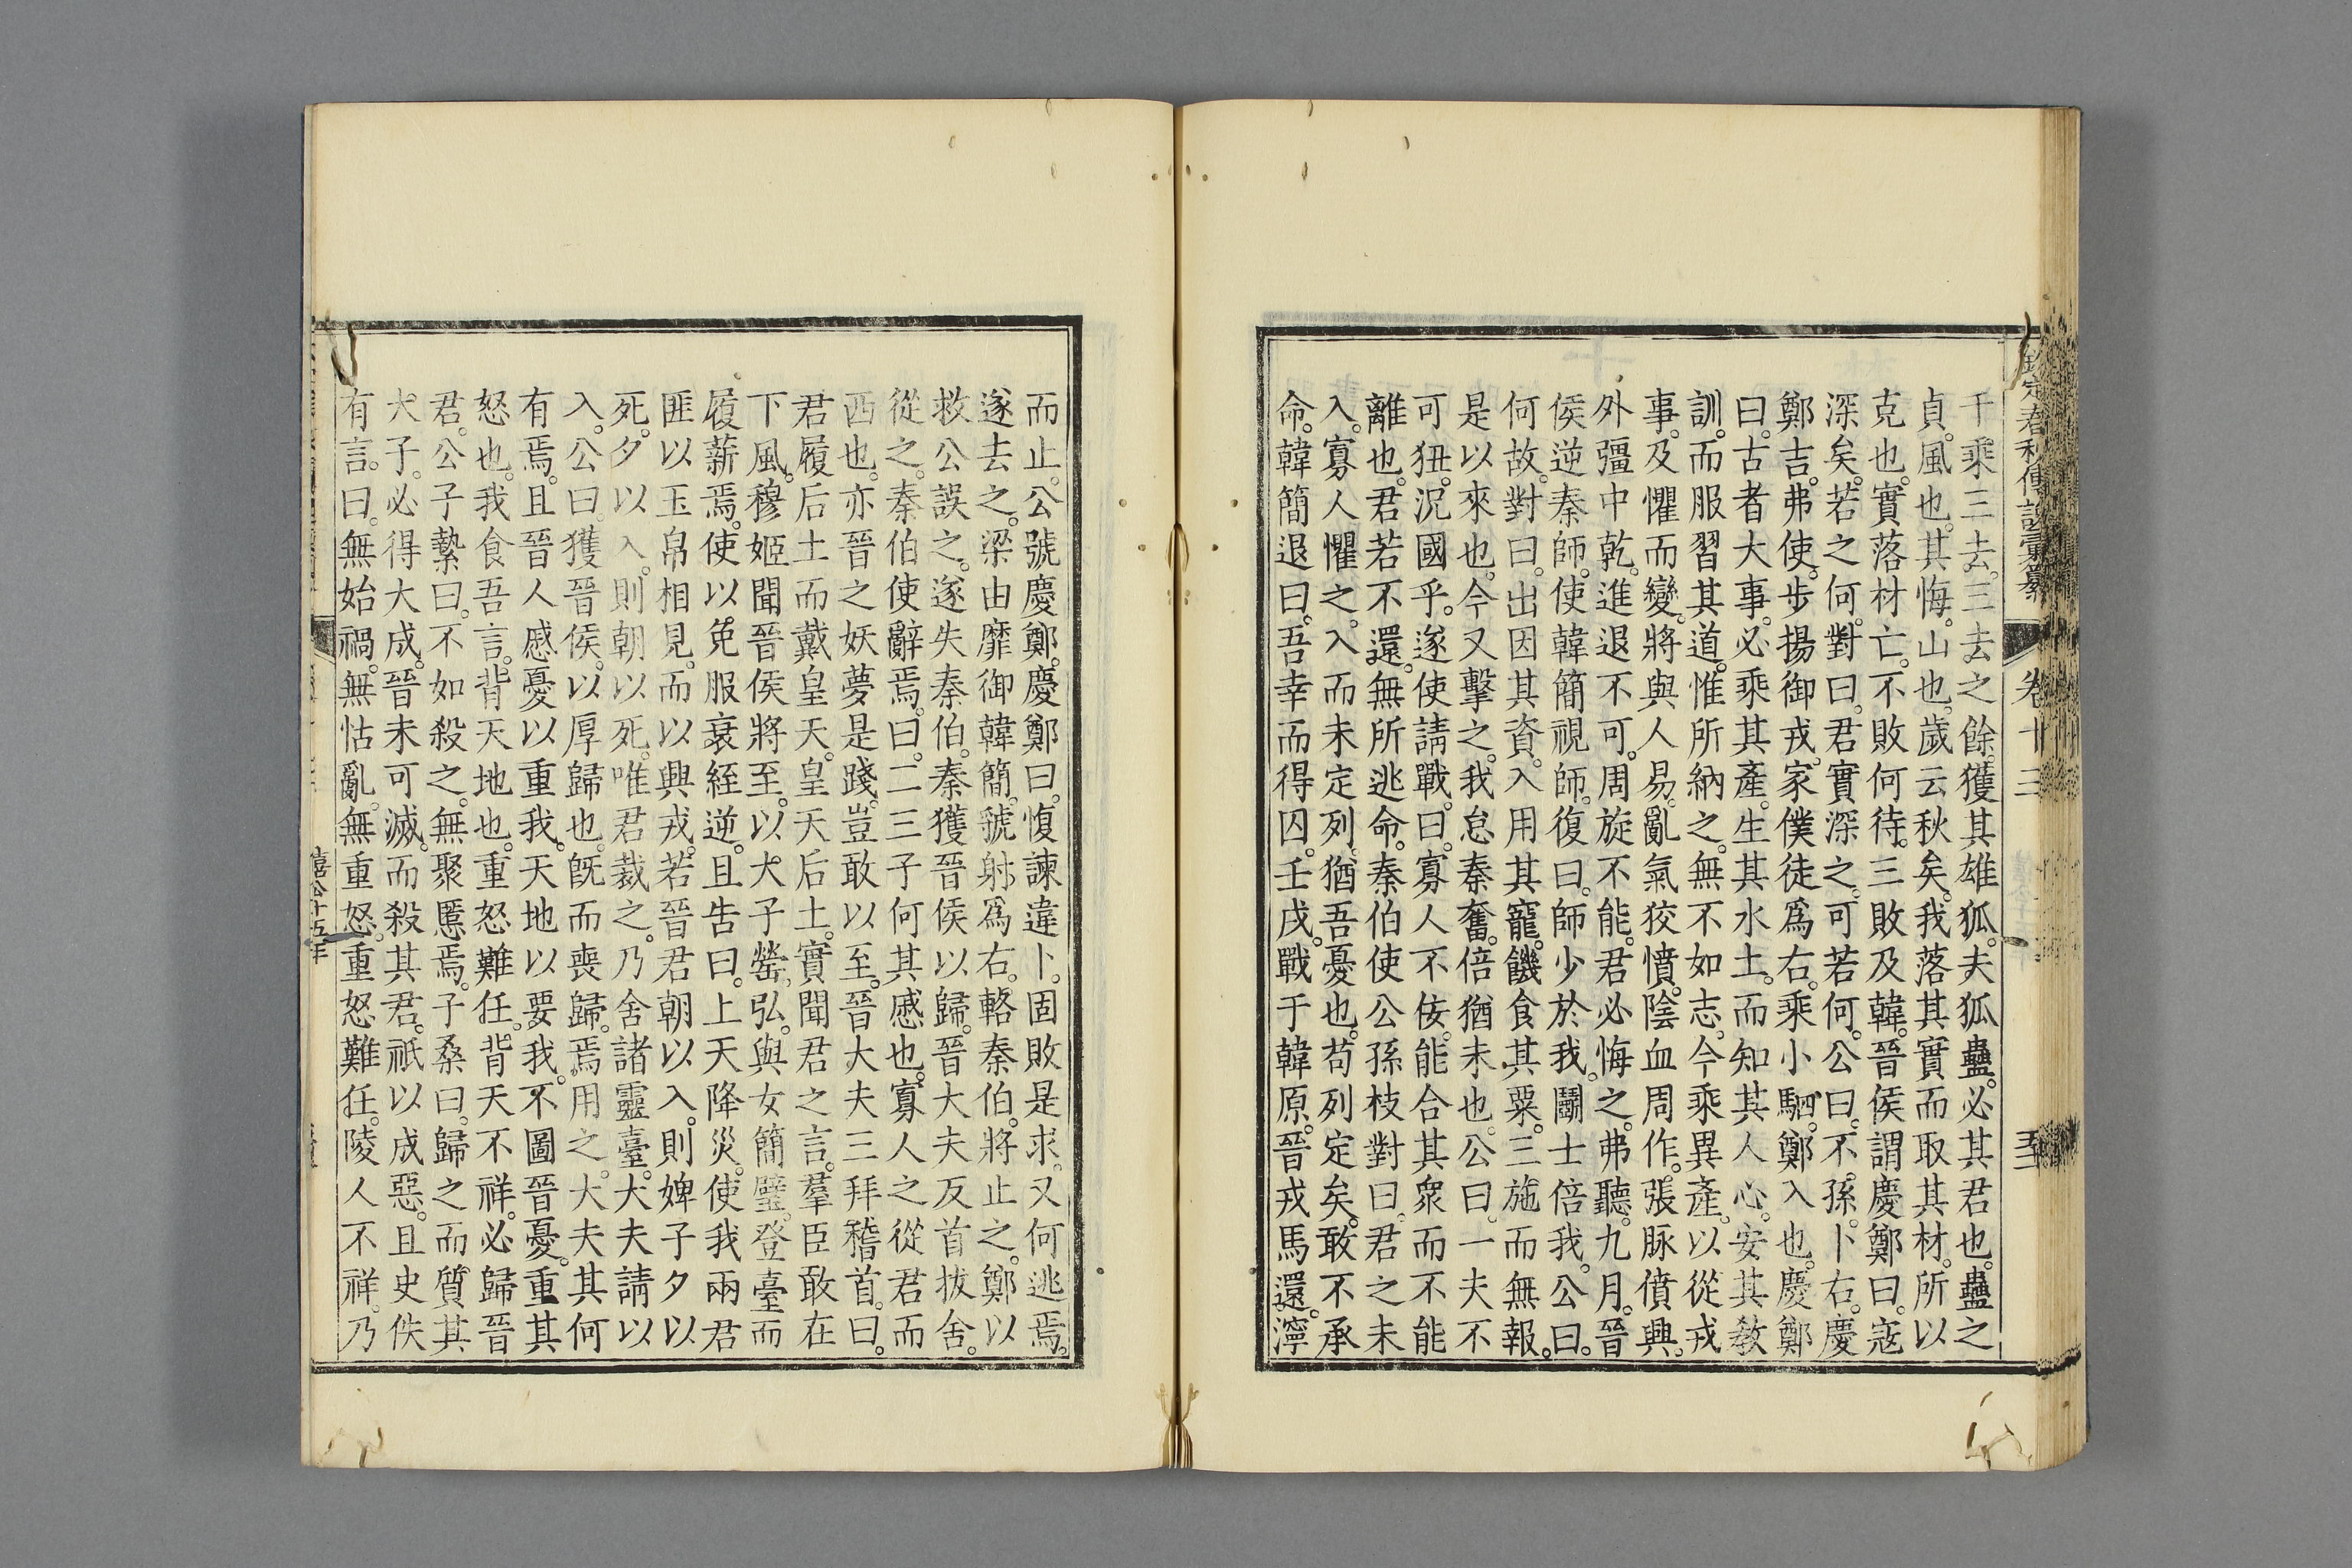 欽定春秋傳說彙纂 卷十三
千乘三去。三去之餘。獲其雄狐。夫狐蠱。必其君也。蠱之
貞。風也。其悔。山也。歲云秋矣。我落其實而取其材。所以
克也。實落材亡。不敗何待。三敗及韓。晉侯謂慶鄭曰。寇
深矣。若之何。對曰。君實深之。可若何。公曰。不孫。卜右。慶
鄭吉。弗使。步揚御戎。家僕徒為右。乘小駟。鄭入也。慶鄭
曰。古者大事。必乘其產。生其水土。而知其人心。安其敎
訓。而服習其道。惟所納之。無不如志。今乘異產。以從戎
事。及懼而變。將與人易。亂氣狡憤。陰血周作。張脉僨興。
外彊中乾。進退不可。周旋不能。君必悔之。弗聽。九月。晉
侯逆秦師。使韓簡視師。復曰。師少於我。鬭士倍我。公曰。
何故。對曰。出因其資。入用其寵。饑食其粟。三施而無報。
是以來也。今又擊之。我怠秦奮。倍猶未也。公曰。一夫不
可狃。況國乎。遂使請戰。曰。寡人不佞。能合其衆而不能
離也。君若不還。無所逃命。秦伯使公孫枝對曰。君之未
入。寡人懼之。入而未定列。猶吾憂也。苟列定矣。敢不承
命。韓簡退曰。吾幸而得囚。壬戌。戰于韓原。晉戎馬還。濘
而止。公號慶鄭。慶鄭曰。愎諫違卜。固敗是求。又何逃焉。
遂去之。梁由靡御韓簡。虢射爲右。輅秦伯。將止之。鄭以
救公誤之。遂失秦伯。秦獲晉侯以歸。晉大夫反首拔舍。
從之。秦伯使辭焉。曰。二三子何其慼也。寡人之從君而
西也。亦晉之妖夢是踐。豈敢以至。晉大夫三拜稽首。曰。
君履后土而戴皇天。皇天后土。實聞君之言。羣臣敢在
下風。穆姬聞晉侯將至。以大子罃。弘。與女簡璧。登臺而
履薪焉。使以免服衰絰逆。且告曰。上天降災。使我兩君
匪以玉帛相見。而以興戎。若晉君朝以入。則婢子夕以
死。夕以入。則朝以死。唯君裁之。乃舍諸靈臺。大夫請以
入。公曰。獲晉侯。以厚歸也。旣而喪歸。焉用之。大夫其何
有焉。且晉人慼憂以重我。天地以要我。不圖晉憂。重其
怒也。我食吾言。背天地也。重怒難任。背天不祥。必歸晉
君。公子縶曰。不如殺之。無聚慝焉。子桑曰。歸之而質其
大子。必得大成。晉未可滅。而殺其君。祇以成惡。且史佚
有言。曰。無始禍。無怙亂。無重怒。重怒難任。陵人不祥。乃
僖公十五年